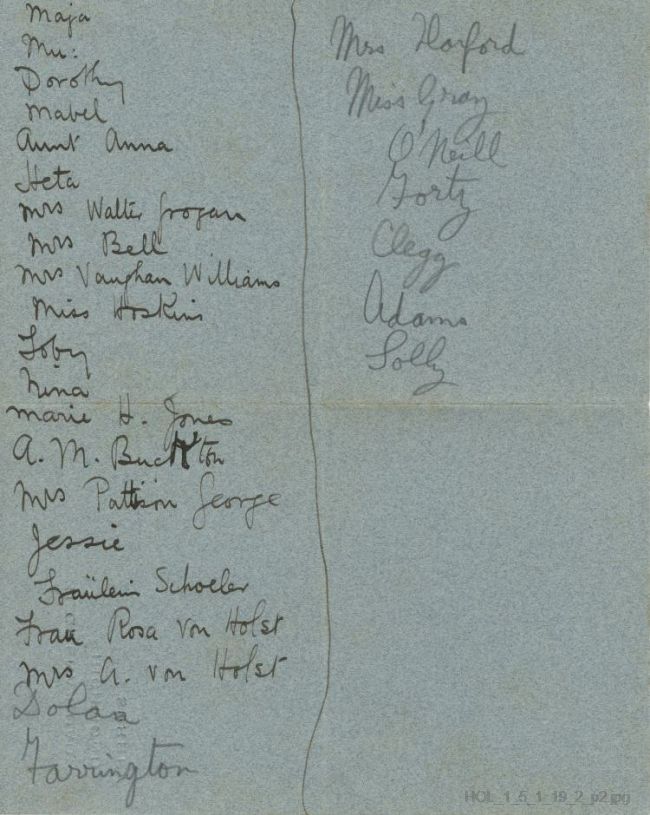 Maja
Mu:
Dorothy
Mabel
Aunt Anna
Heta
Mrs Walter Grogan
Mrs Bell
Mrs Vaughan Williams
Miss Hoskins
Toby
Nina
Marie H. Jones
A. M. Buckton
Mrs Pattison George
Jessie
Fraülein Schoeler
Frau Rosa von Holst
Mrs A. von Holst
Dolan
Farrington
Mrs Harford
Miss Gray
O'Neill
Forty
Clegg
Adams
Solly
HOL_1_5_1-19_2_p2.jpg